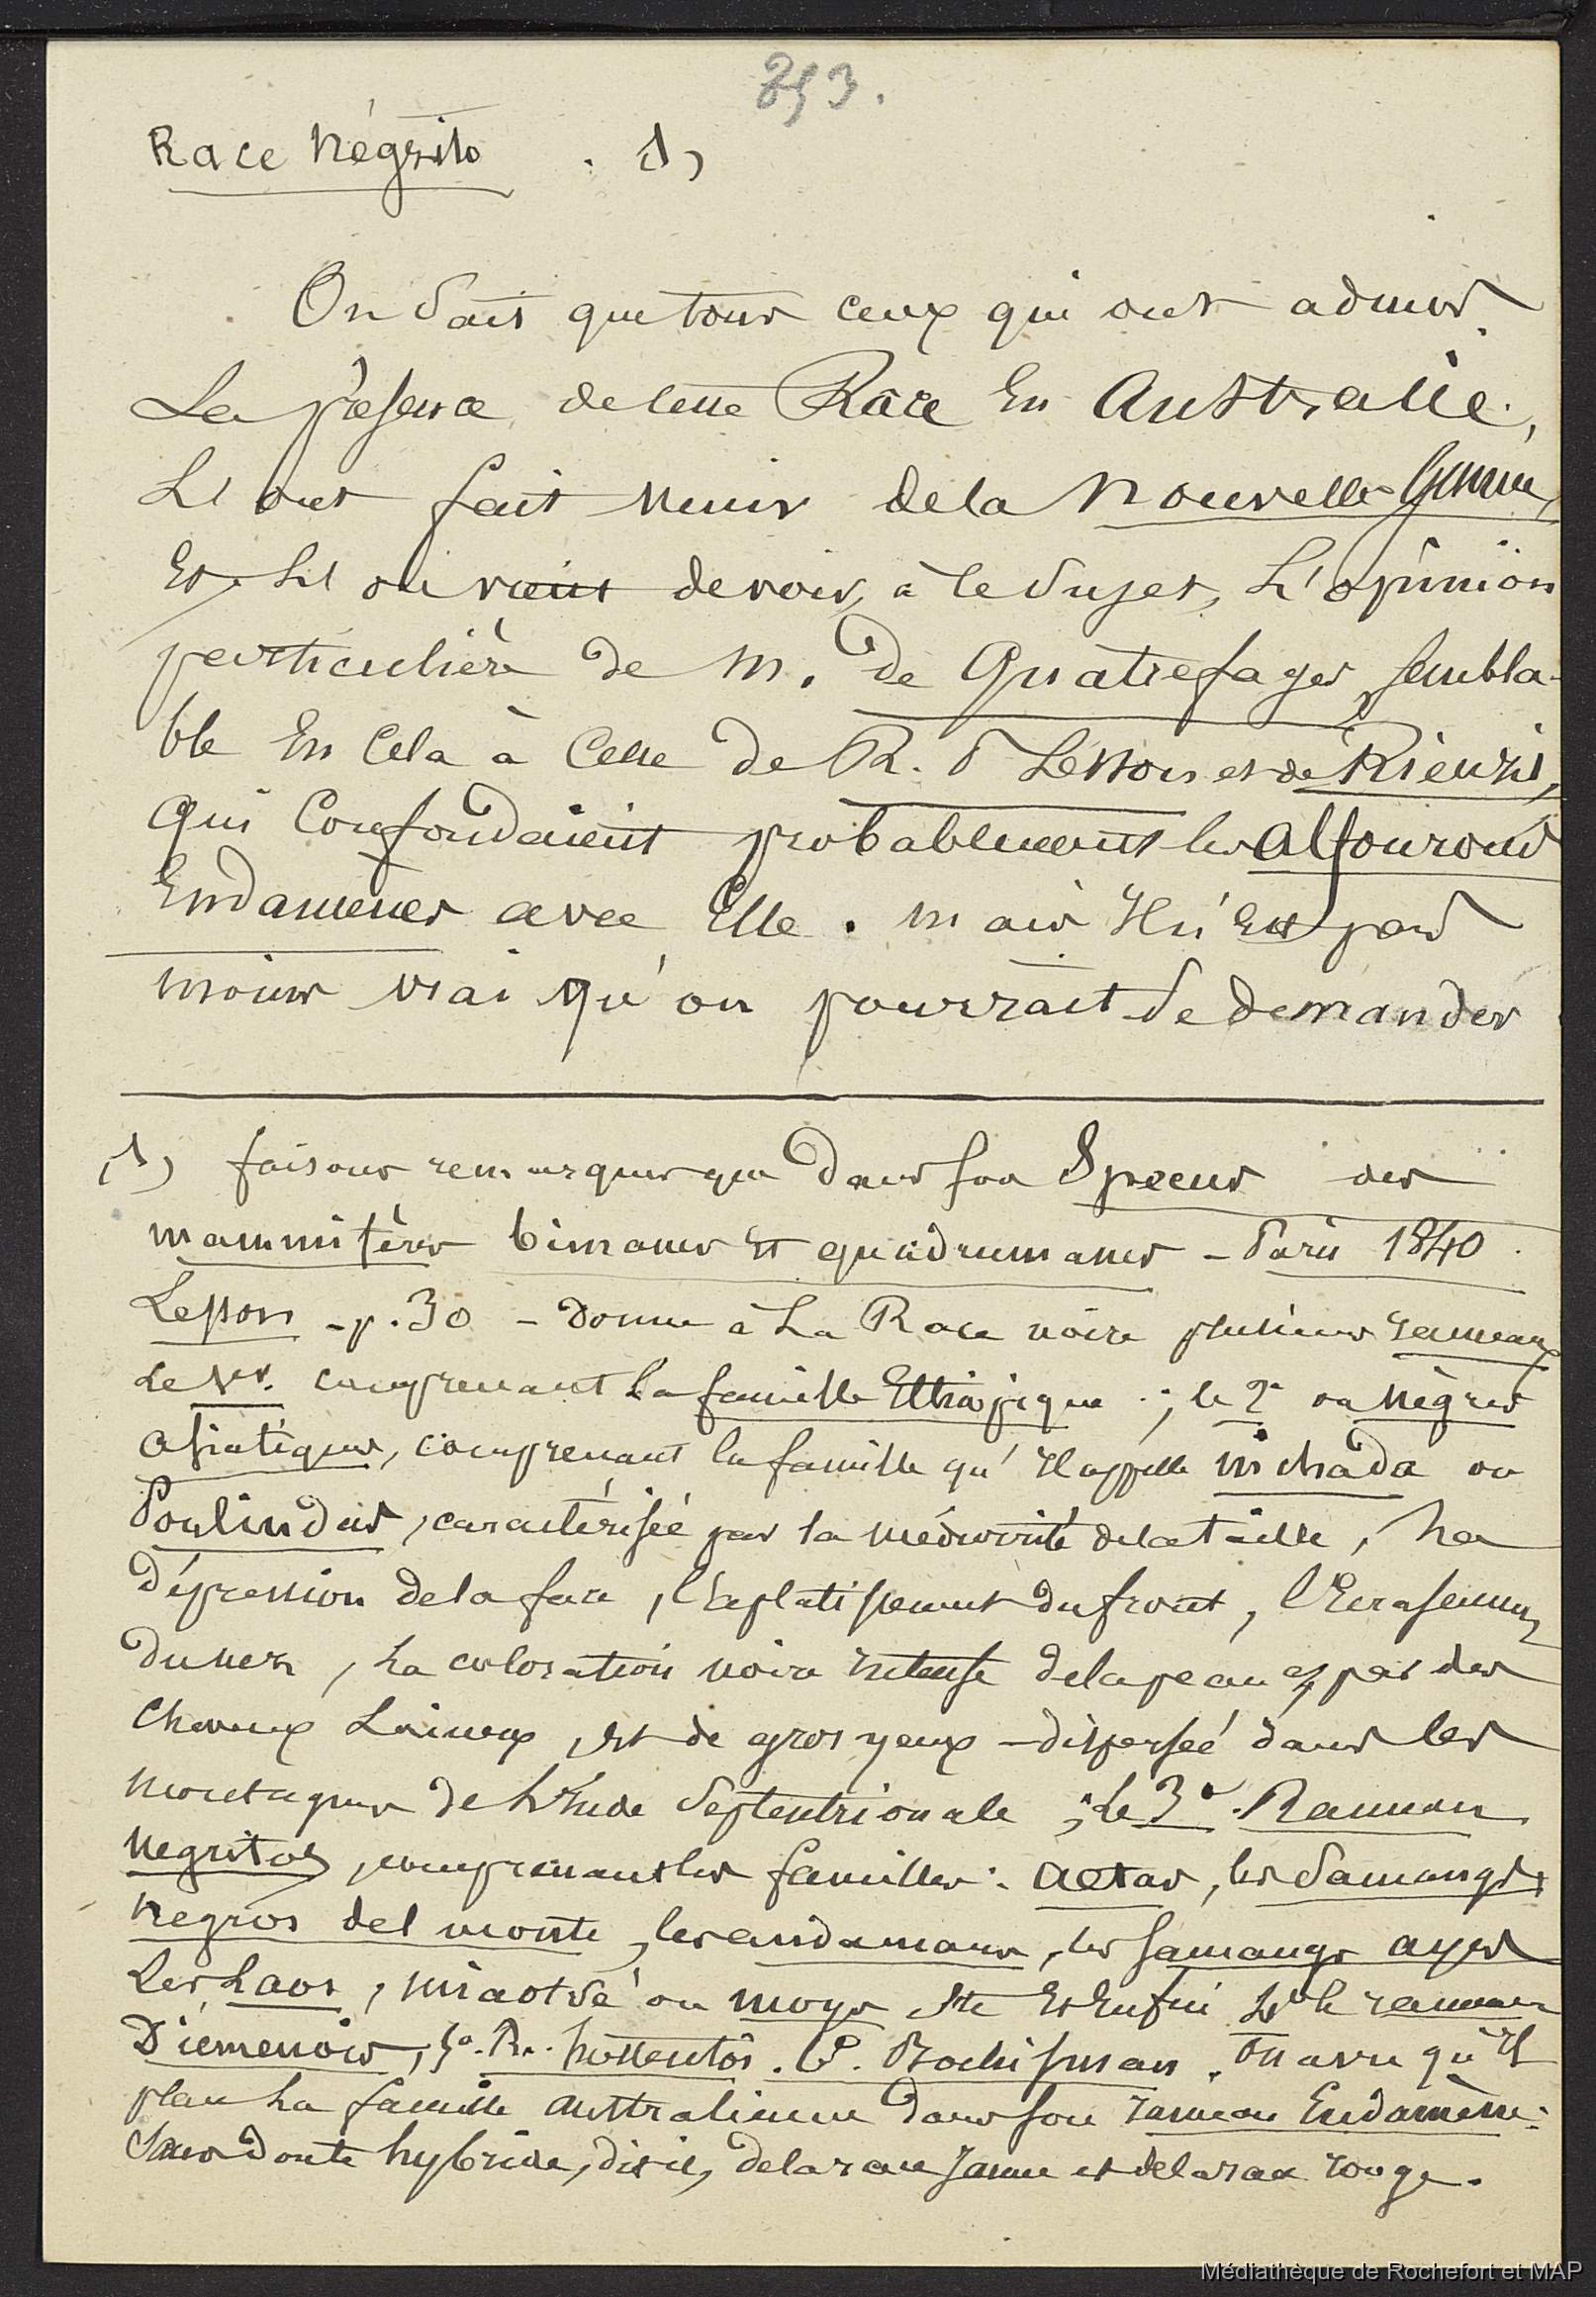 253.
Race Négrito . 1)
On sait que tous ceux qui ont admis
La présence de cette Race En Australie,
L'ont fait venir de la Nouvelle Guinée,
Et L'on vient de voir, à ce sujet, L'opinion
particulière de M. de Quatrefages, sembla-
ble En Cela à Celle de R. P Lesson et de Rienzi,
qui Confondaient probablement les Alfourous
Endamènes avec Elle. Mais Il n'Est pas
moins vrai qu'on pourrait se demander
1) faisons remarquer que dans son Species des
mammifères bimanes et quadrumanes - Paris 1840.
Lesson - p. 30 - donne à La Race noire plusieurs rameaux
Le 1er. comprenant La famille Ethiopique ; le 2e ou Nègres
asiatiques, comprenant la famille qu'Il appelle Nichada ou
Poulindas, caractérisée par la médiocrité de la taille, La
dépression de la face, l'aplatissement du front, l'Ecrasement
du nez, La coloration noire intense de la peau et par des
Cheveux Laineux, et de gros yeux - dispersée dans les
Montagnes de L'Inde Septentrionale ; Le 3e. Rameau
Negritos, comprenant les familles : Aetas, les Samangs,
Negros del monte, les andamans, les Samangs
Les Laos, ou moys etc Et Enfin Le 4e rameau
Diemenois, 5e. R. hottentôs. 6e. Bochisman. On a vu qu'Il
place La famille Australienne dans son rameau Endamène :
Sans doute hybride, dit il, de la race Jaune et de la race rouge.
Médiathèque de Rochefort et MAP